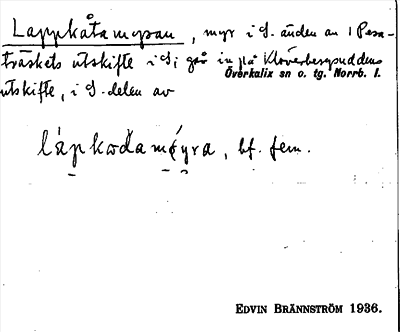 Lappkåtamyran, myr i S. änden av Pesa-
träskets utskifte i S; går in på Klöverbergsuddens
Överkalix sn o. tg. Norrb. l.
utskifte, i S. delen av
bf. fem.
EDVIN BRÄNNSTRÖM 1936.